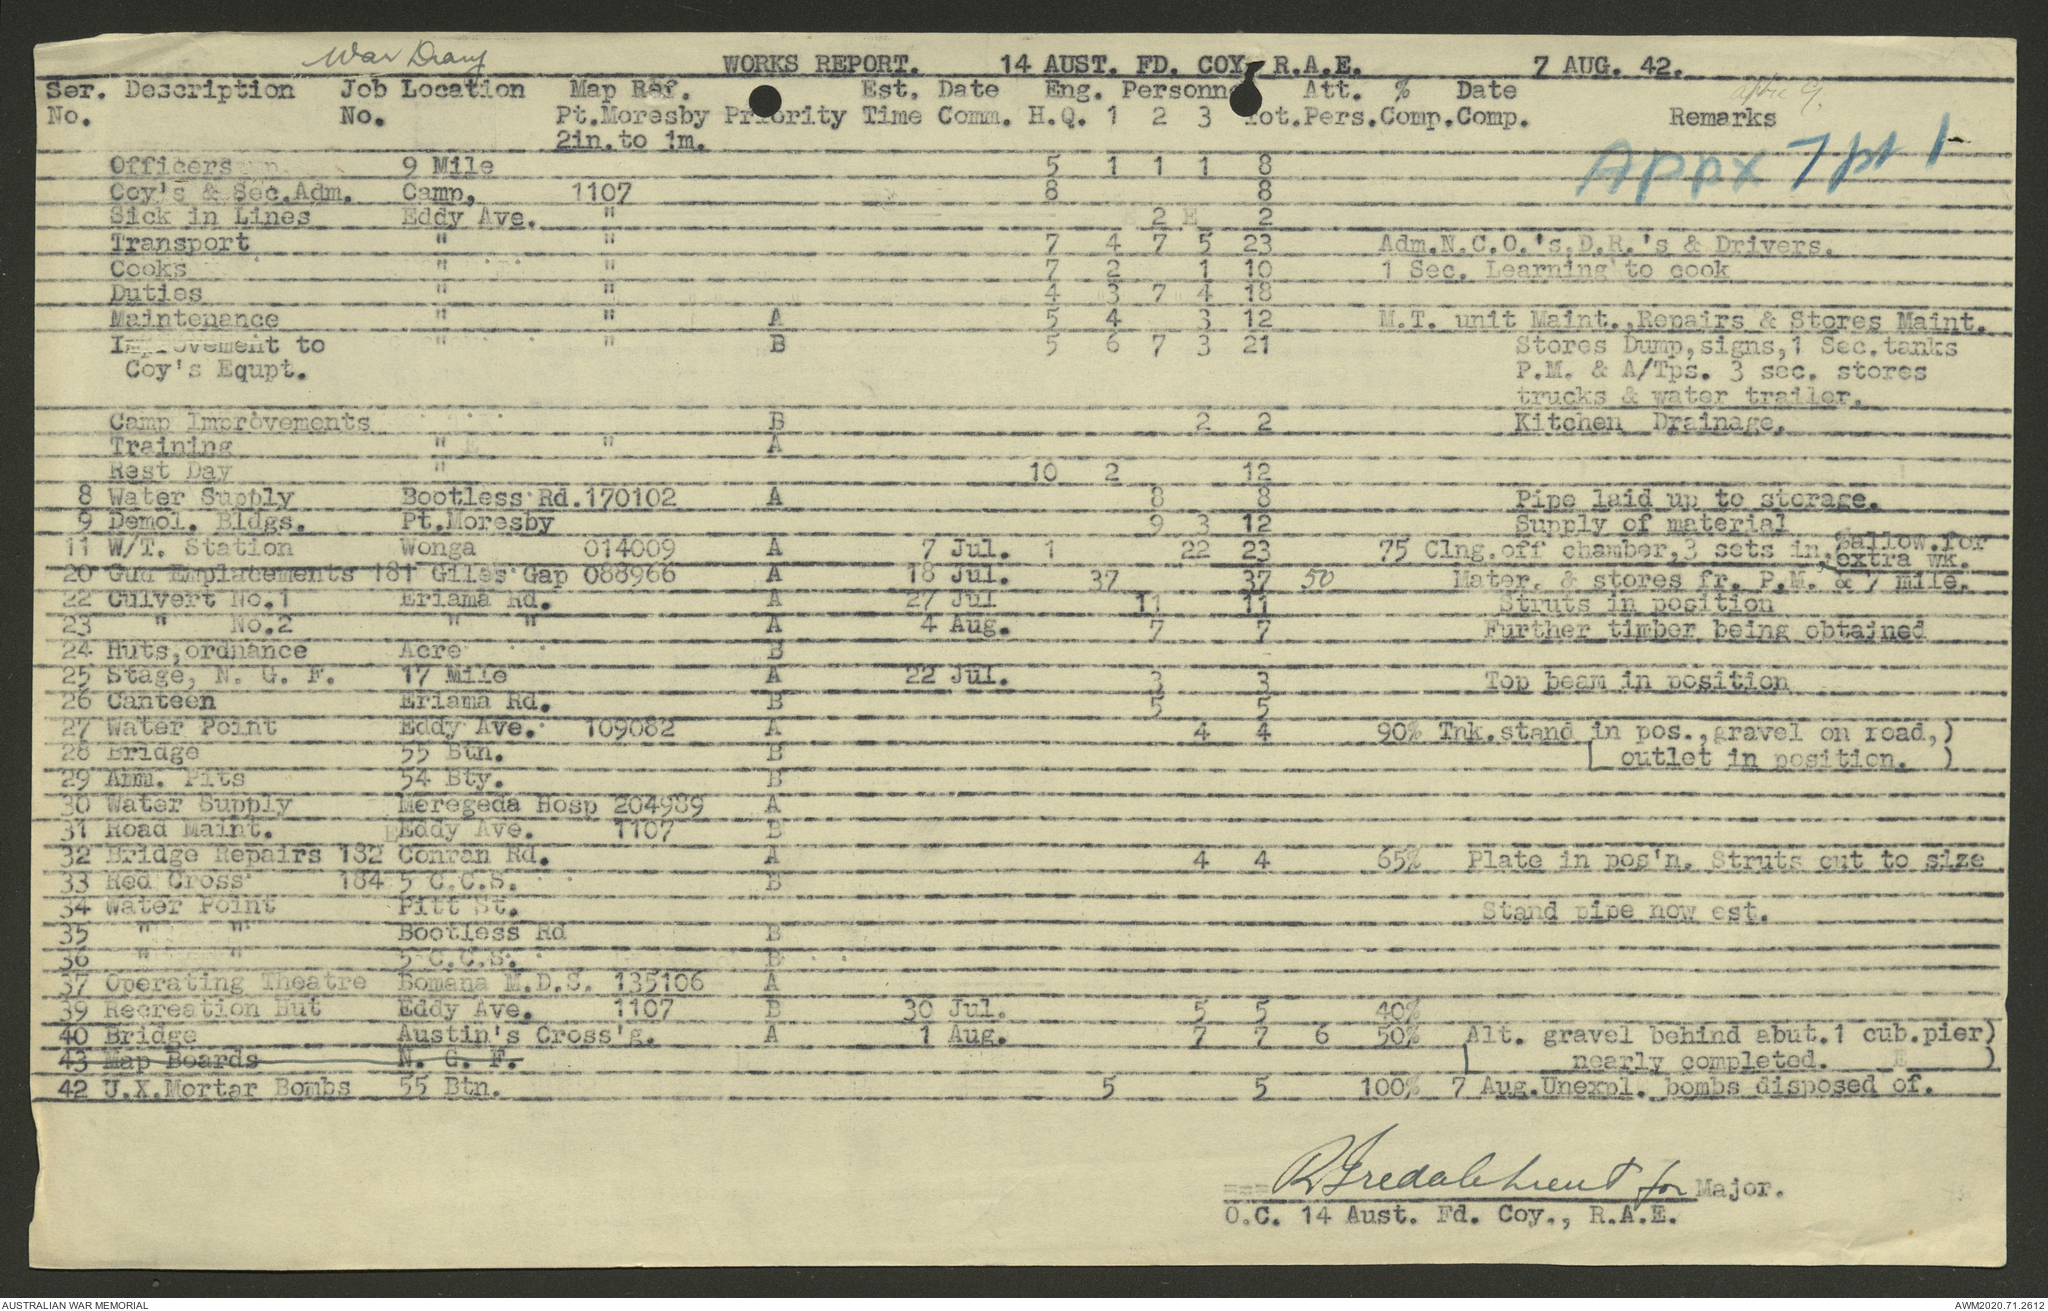 War Diary
WORKS REPORT. 14 AUST. FD. COY. R.A.E. 7 AUG. 42.
Ser. Description Job Location Map Ref. Est. Date Eng. Personne Att. % Date
No. No. Pt.Moresby Priority Time Comm. H.Q. 1 2 3 Tot.Pers.Comp.Comp. Remarks
2in.to 1m.
Appx 7 pt 1
Officers 9 Mile 5 1 1 1 8
Coy's & Sec.Adm. Camp, 1107 8 8
Sick in Lines Eddy Ave. " 2 2
Transport " " 7 4 7 5 23 Adm.N.C.O.'s,D.R.'s & Drivers.
Cooks " " 7 2 1 10 1 Sec. Learning to cook
Duties " " 4 3 7 4 18
Maintenance " " A 5 4 3 12 M.T. unit Maint.,Repairs & Stores Maint.
Improvement to " " B 5 6 7 3 21 Stores Dump,signs,1 Sec.tanks
Coy's Equpt. P.M. & A/Tps. 3 sec. stores
trucks & water trailer.
Camp Improvements B 2 2 Kitchen Drainage.
Training " " A
Rest Day " 10 2 12
8 Water Supply Bootless Rd.170102 A 8 8 Pipe laid up to storage.
9 Demol. Bldgs. Pt.Moresby 9 3 12 Supply of material
11 W/T. Station Wonga 014009 A 7 Jul. 1 22 23 75 Clng.off chamber,3 sets in, %allow.for
extra wk.
20 Gun Emplacements 181 Giles Gap 088966 A 18 Jul. 37 37 50 Mater. & stores fr. P.M. & 7 mile.
22 Culvert No.1 Eriama Rd. A 27 Jul 11 11 Struts in position
23 " No.2 " " A 4 Aug. 7 7 Further timber being obtained
24 Huts,ordnance Acre B
25 Stage, N. G. F. 17 Mile A 22 Jul. 3 3 Top beam in position
26 Canteen Eriama Rd. B 5 5
27 Water Point Eddy Ave. 109082 A 4 4 90% Tnk.stand in pos.,gravel on road,)
28 Bridge 55 Btn. B ( outlet in position. )
29 Amm. Pits 54 Bty. B
30 Water Supply Meregeda Hosp 204989 A
31 Road Maint. Eddy Ave. 1107 B
32 Bridge Repairs 182 Conran Rd. A 4 4 65% Plate in pos'n. Struts cut to size
33 Red Cross 184 5 C.C.S. B
34 Water Point Pitt St. Stand pipe now est.
35 " " Bootless Rd B
36 " " 5 C.C.S. B
37 Operating Theatre Bomana M.D.S. 135106 A
39 Recreation Hut Eddy Ave. 1107 B 30 Jul. 5 5 40%
40 Bridge Austin's Cross'g. A 1 Aug. 7 7 6 50% Alt. gravel behind abut.1 cub.pier)
43 Map Boards N. G. F. ( nearly completed. )
42 U.X.Mortar Bombs 55 Btn. 5 5 100% 7 Aug.Unexpl. bombs disposed of.
Lieut for Major.
O.C. 14 Aust. Fd. Coy., R.A.E.
AUSTRALIAN WAR MEMORIAL AWM2020.71.2612